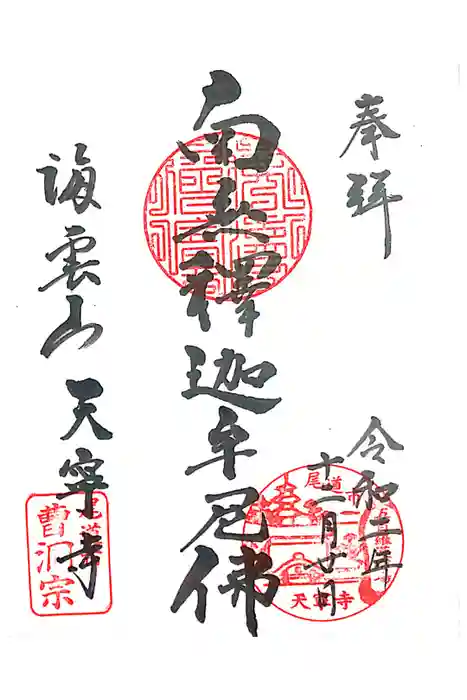 奉拝
令和二年
十二月廿日
南無釋迦牟尼佛
海雲山
天寧寺
尾道市
天寧寺
曹洞宗